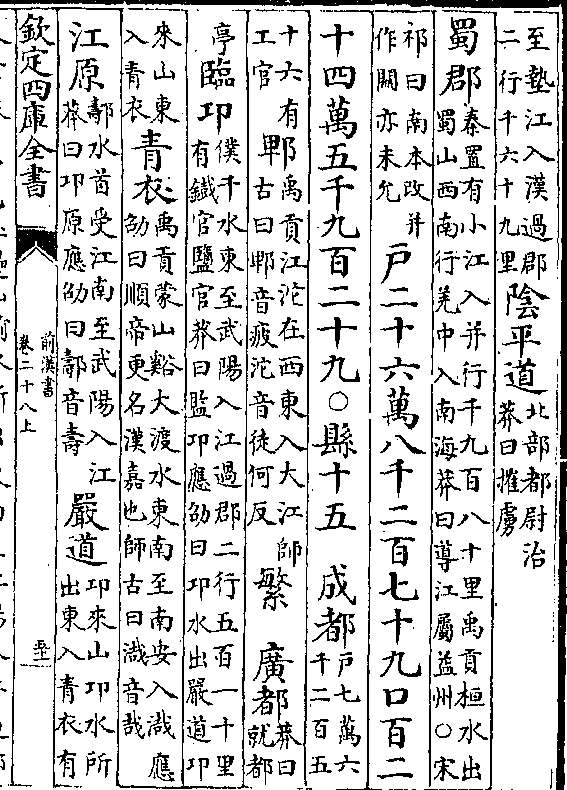 至墊江入漢過郡
二行千六十九里
陰平道
北部都尉治
莽曰摧虜
蜀郡
秦置有小江入并行千九百八十里禹貢桓水出
蜀山西南行羌中入南海莽曰導江屬益州○宋
祁曰南本改并
作關亦未允
戶二十六萬八千二百七十九口百二
十四萬五千九百二十九○縣十五　成都
戶七萬六
千二百五
十六有
工官
郫
禹貢江沱在西東入大江師
古曰郫音疲沱音徒何反
繁　廣都
莽曰
就都
亭
臨邛
僕千水東至武陽入江過郡二行五百一十里
有鐵官鹽官莽曰監邛應劭曰邛水出嚴道邛
來山東
入青衣
青衣
禹貢蒙山谿大渡水東南至南安入渽應
劭曰順帝更名漢嘉也師古曰渽音哉
江原
䣝水首受江南至武陽入江
莽曰邛原應劭曰䣝音壽
嚴道
邛來山邛水所
出東入青衣有
欽定四庫全書
前漢書
卷二十八上